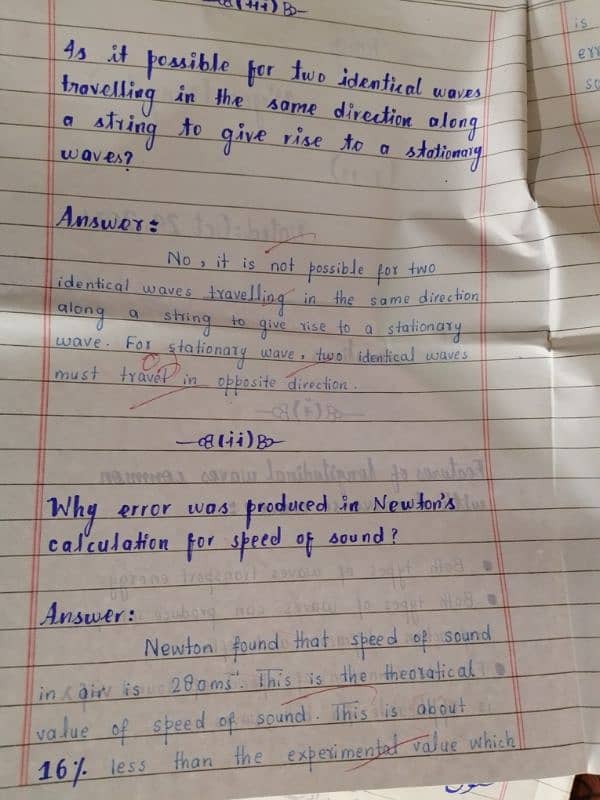 (iii)
Is it possible for two identical waves
travelling in the same direction along
a string to give rise to a stationary
waves?
Answer:
No, it is not possible for two
identical waves travelling in the same direction
along a string to give rise to a stationary
wave. For stationary wave, two identical waves
must travel in opposite direction.
(ii)
Why error was produced in Newton's
calculation for speed of sound?
Answer:
Newton found that speed of sound
in air is 280ms⁻¹. This is the theoratical
value of speed of sound. This is about
16% less than the experimental value which
is
err
so